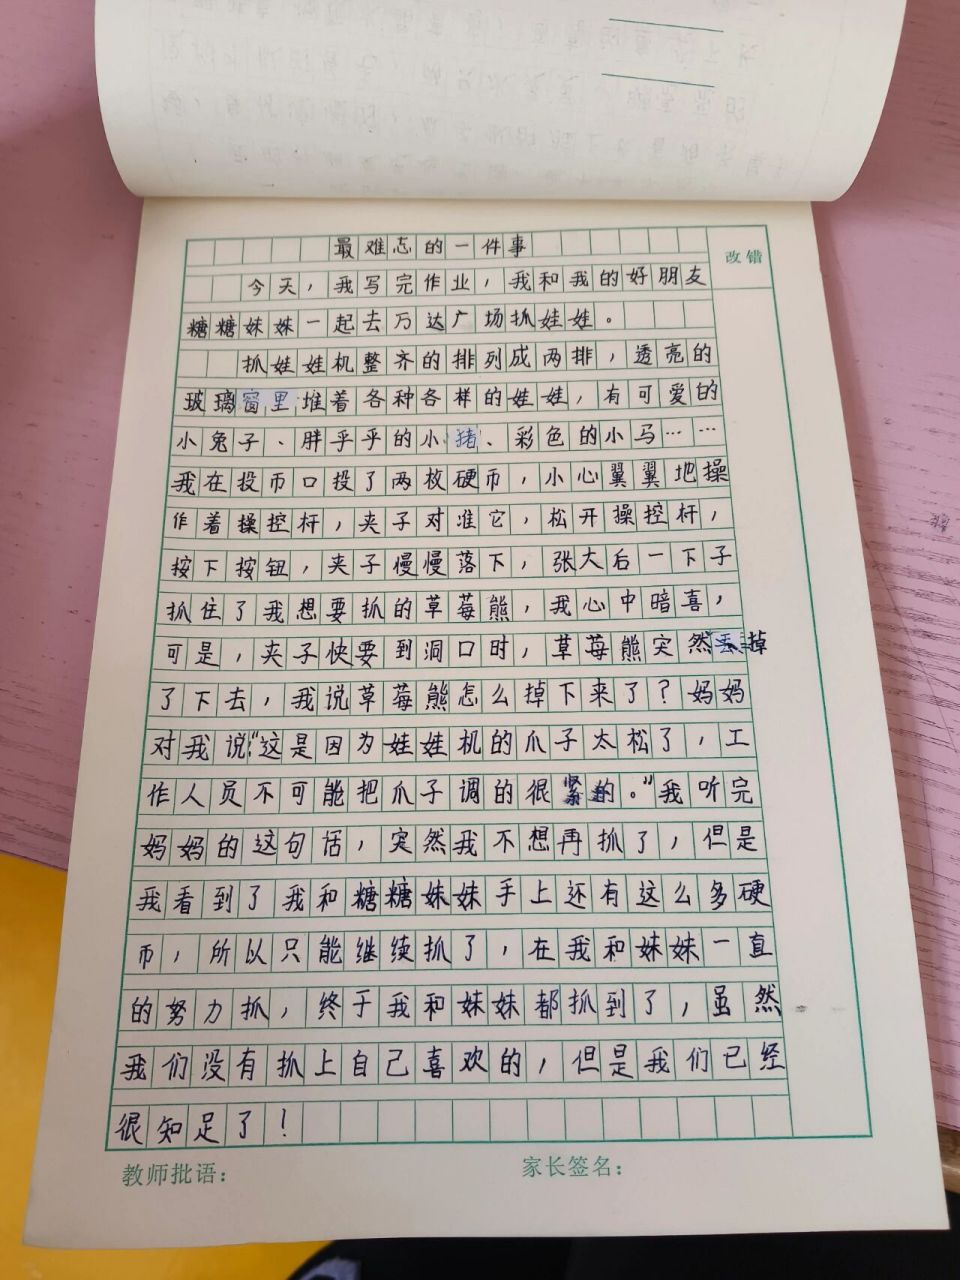 最难忘的一件事
改错
今天，我写完作业，我和我的好朋友
糖糖妹妹一起去万达广场抓娃娃。
抓娃娃机整齐的排列成两排，透亮的
玻璃窗里堆着各种各样的娃娃，有可爱的
小兔子、胖乎乎的小猪、彩色的小马……
我在投币口投了两枚硬币，小心翼翼地操
作着操控杆，夹子对准它，松开操控杆，
按下按钮，夹子慢慢落下，张大后一下子
抓住了我想要抓的草莓熊，我心中暗喜，
可是，夹子快要到洞口时，草莓熊突然掉
了下去，我说草莓熊怎么掉下来了？妈妈
对我说“这是因为娃娃机的爪子太松了，工
作人员不可能把爪子调的很紧的。”我听完
妈妈的这句话，突然我不想再抓了，但是
我看到了我和糖糖妹妹手上还有这么多硬
币，所以只能继续抓了，在我和妹妹一直
的努力抓，终于我和妹妹都抓到了，虽然
我们没有抓上自己喜欢的，但是我们已经
很知足了！
教师批语：
家长签名：